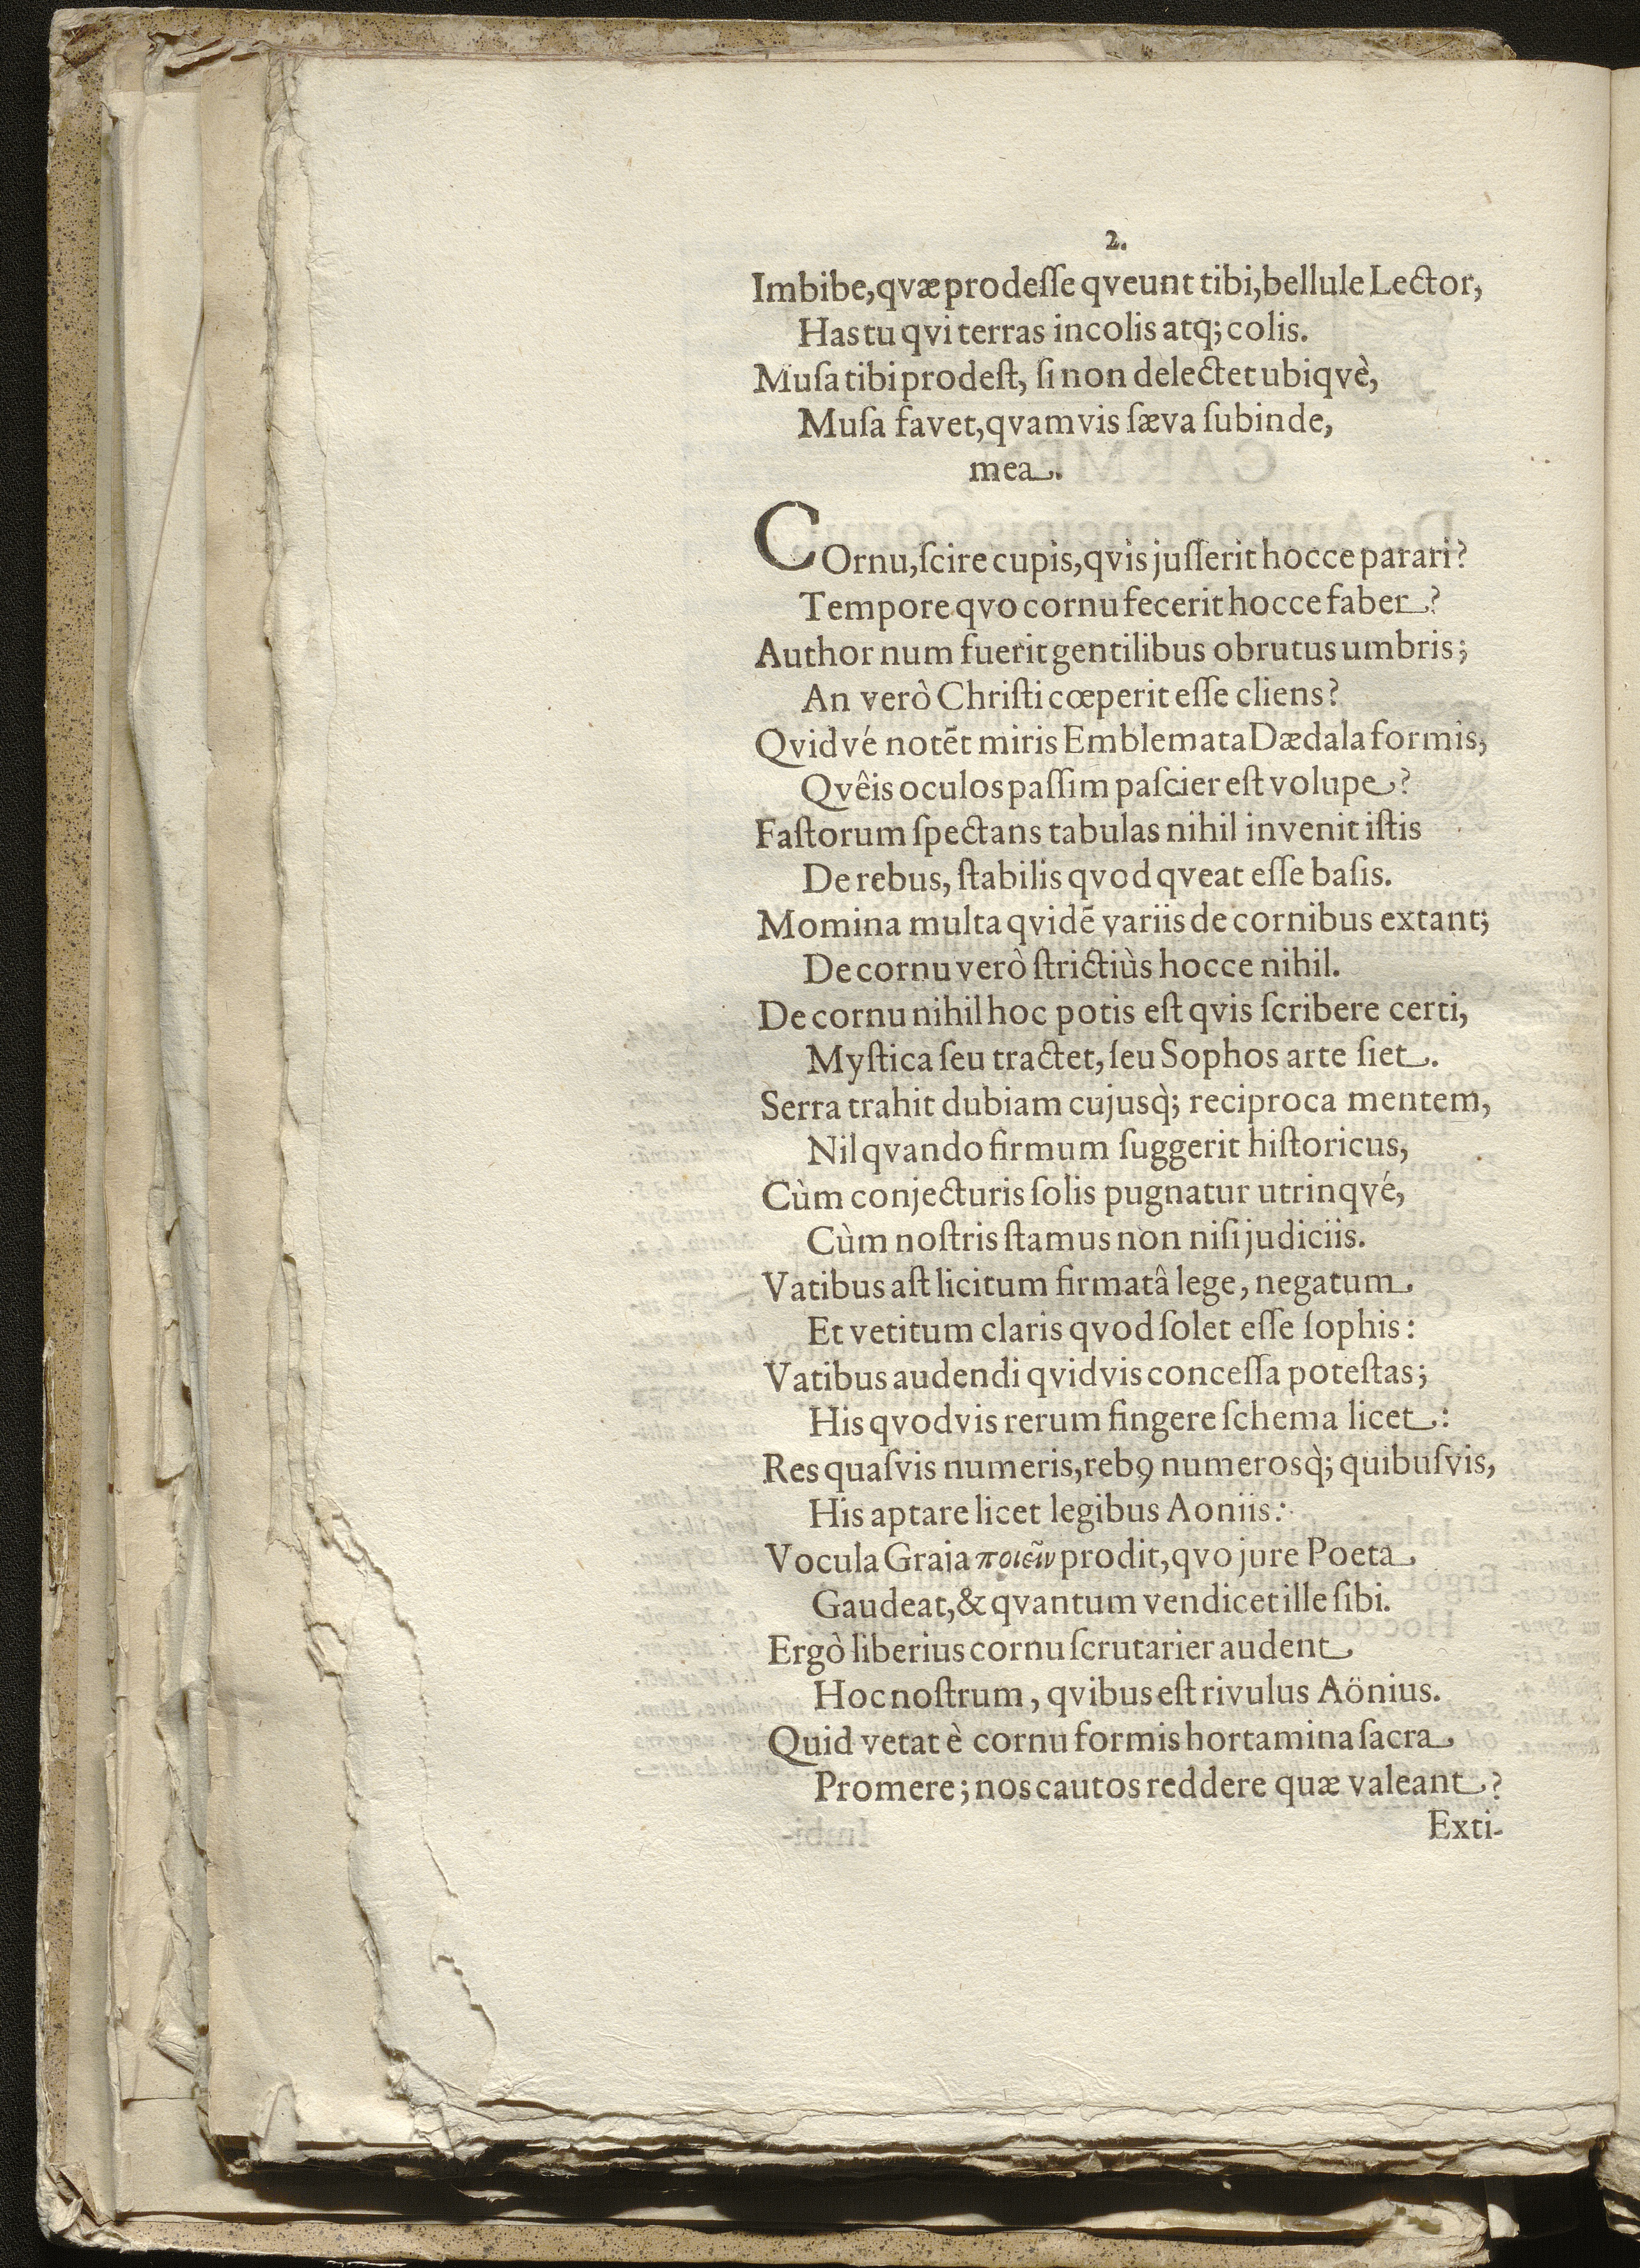 2.
Imbibe, qvæ prodeſſe qveunt tibi, bellule Lector,
Has tu qvi terras incolis atq; colis.
Muſa tibi prodeſt, ſi non delectet ubiqvè,
Muſa favet, qvamvis ſæva ſubinde,
mea.
COrnu, ſcire cupis, qvis juſſerit hocce parari?
Tempore qvo cornu fecerit hocce faber?
Author num fuerit gentilibus obrutus umbris;
An verò Chriſti cœperit eſſe cliens?
Qvidvé notēt miris Emblemata Dædala formis,
Qvêis oculos paſſim paſcier eſt volupe?
Faſtorum ſpectans tabulas nihil invenit iſtis
De rebus, ſtabilis qvod qveat eſſe baſis.
Momina multa qvidē variis de cornibus extant;
De cornu verò ſtrictiùs hocce nihil.
De cornu nihil hoc potis eſt qvis ſcribere certi,
Myſtica ſeu tractet, ſeu Sophos arte ſiet.
Serra trahit dubiam cujusq̀; reciproca mentem,
Nil qvando firmum ſuggerit hiſtoricus,
Cùm conjecturis ſolis pugnatur utrinqvé,
Cùm noſtris ſtamus non niſi judiciis.
Vatibus aſt licitum firmatâ lege, negatum
Et vetitum claris qvod ſolet eſſe ſophis:
Vatibus audendi qvidvis conceſſa poteſtas;
His qvodvis rerum fingere ſchema licet:
Res quaſvis numeris, rebꝰ numerosq̀; quibuſvis,
His aptare licet legibus Aoniis:
Vocula Graia ποιεῖν prodit, qvo jure Poeta
Gaudeat, & qvantum vendicet ille ſibi.
Ergò liberius cornu ſcrutarier audent
Hoc noſtrum, qvibus eſt rivulus Aönius.
Quid vetat è cornu formis hortamina ſacra
Promere; nos cautos reddere quæ valeant?
Exti-